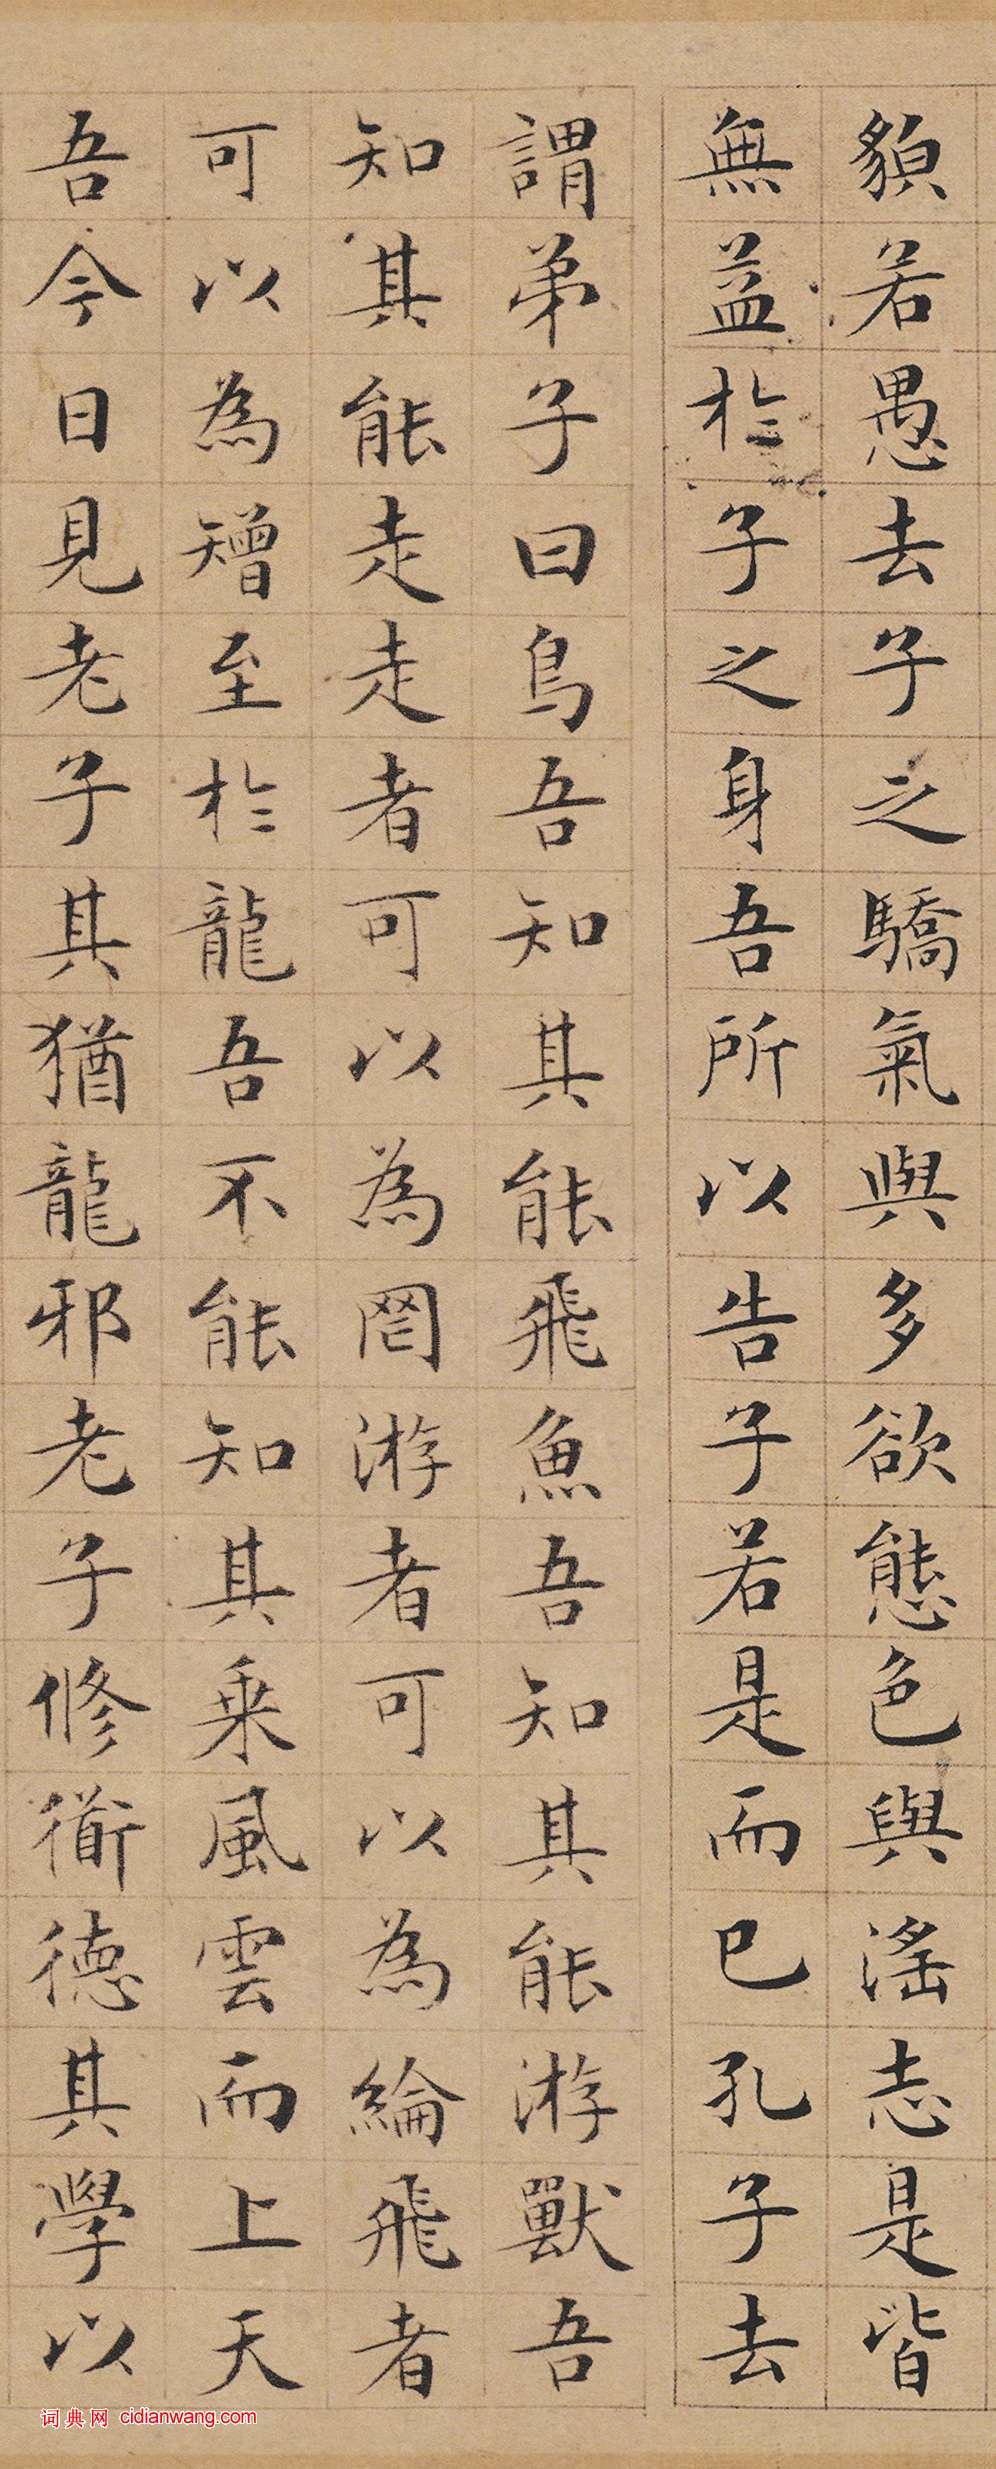 貌若愚去子之驕氣與多欲態色與滛志是皆
無益於子之身吾所以告子若是而已孔子去
謂弟子曰鳥吾知其能飛魚吾知其能游獸吾
知其能走走者可以為罔游者可以為綸飛者
可以為矰至於龍吾不能知其乗風雲而上天
吾今日見老子其猶龍邪老子脩衜德其學以
词典网 cidianwang.com